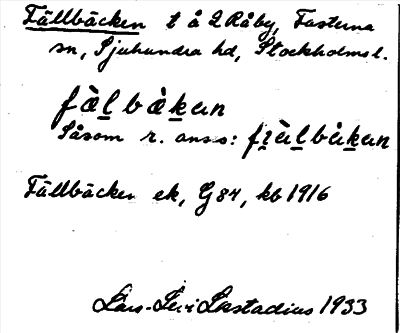 Fällbäcken t å 2 Råby, Fasterna
sn, Sjuhundra hd, Stockholms l.
fä̀l bä̀kan
Såsom r. anses: fi̯ä̀lbäkan
Fällbäcken ek, G 84, kb 1916
Lars-Levi Læstadius 1933